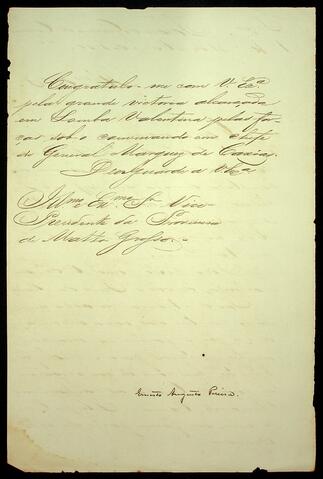 Congratulo-me com V. Exª
pela grande victoria alcançada
em Lomba Valentina pelas for-
ças sob o commando em chefe
do General Marquez de Caxias.
Deos Guarde a V. Exª
Illmo Exmo Sr Vice
Presidente da Provincia
de Matto Grosso.
Ernesto Augusto Pereira.